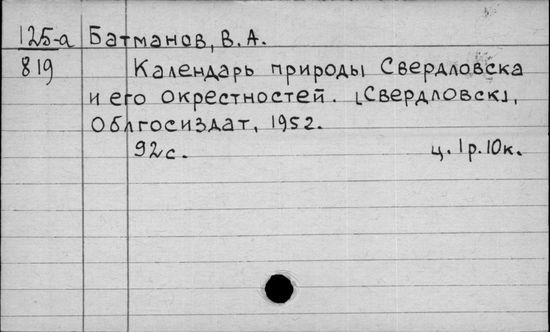 125-а Батманов, В.А.
819 Календарь природы Свердловска
и его окрестностей. [Свердловск],
Облгосиздат, 1952.
92с. ц. 1р.10к.